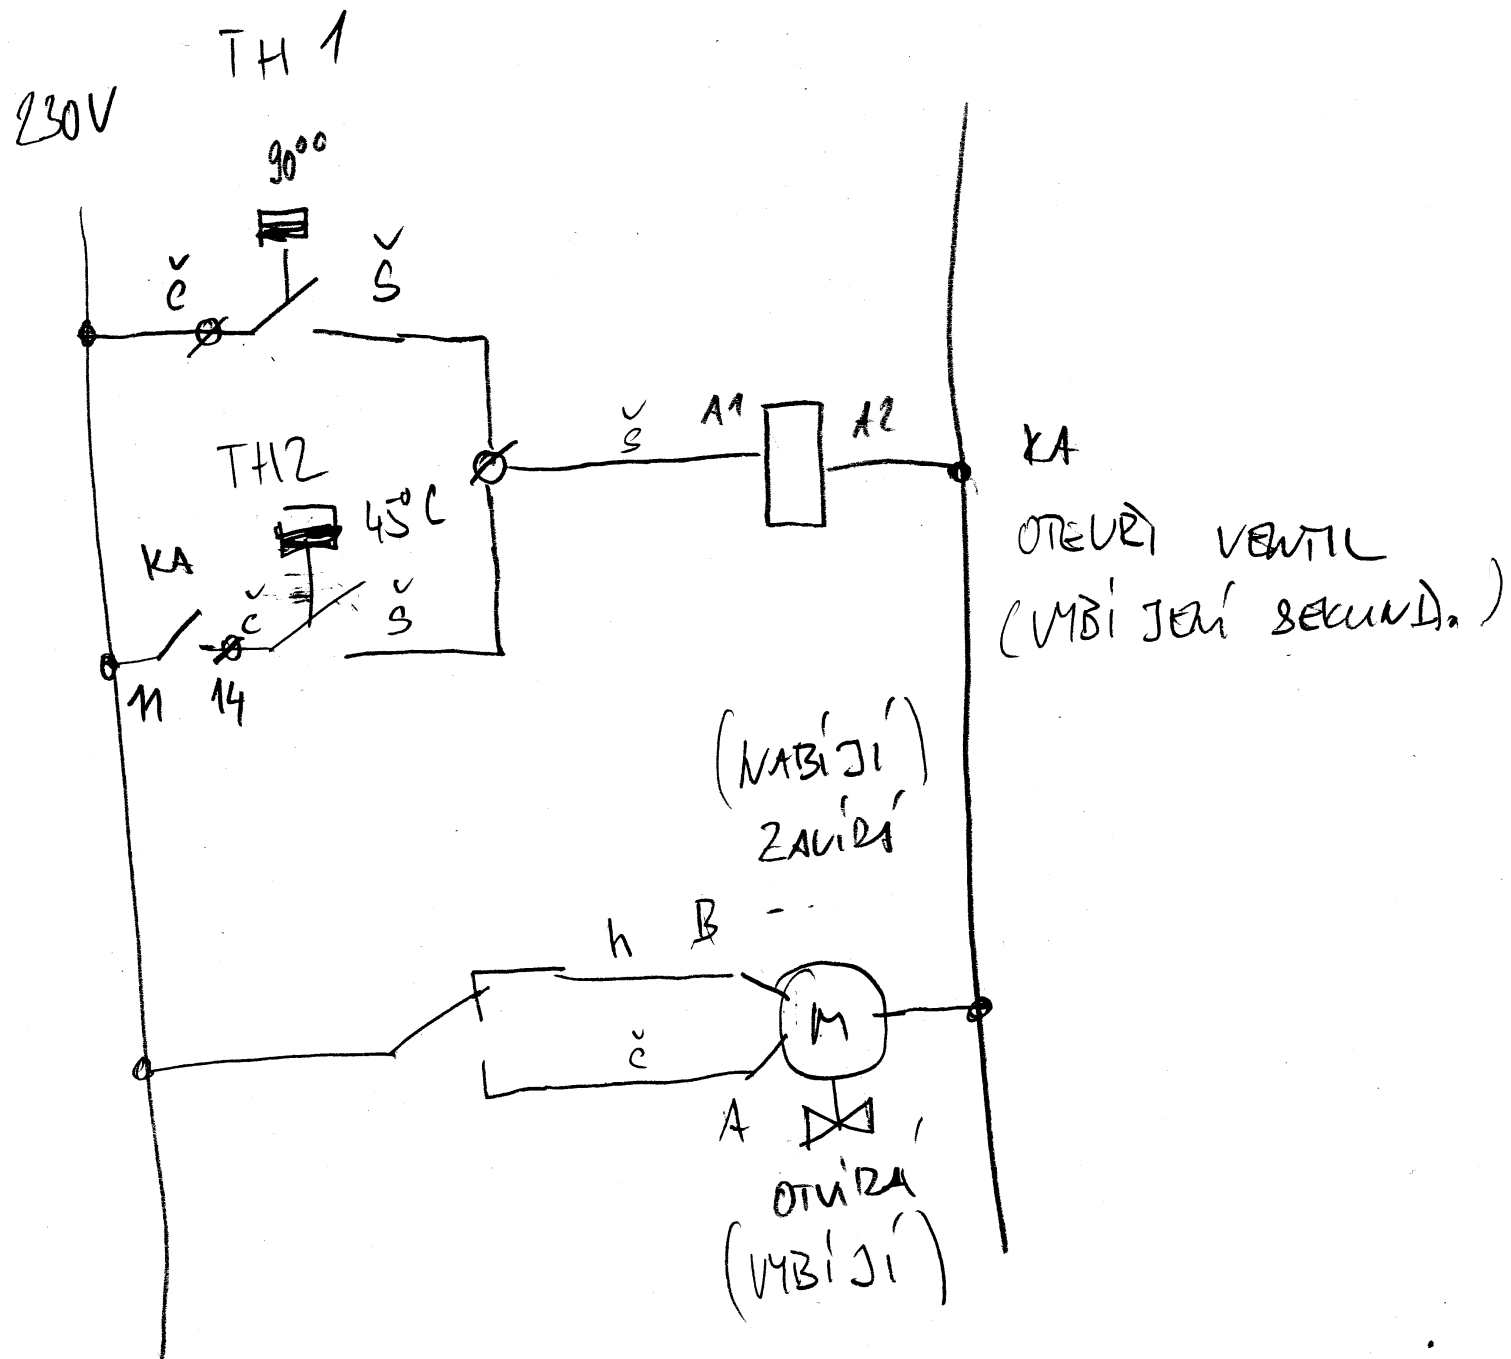 TH 1
230V
90°°
č
š
TH2
45°C
KA
č
š
11
14
š
A1
A2
KA
OTEVŘÍ VENTIL
(VYBÍJENÍ SEKUND.)
(NABÍJÍ)
ZAVÍRÁ
h
B
M
č
A
OTVÍRÁ
(VYBÍJÍ)